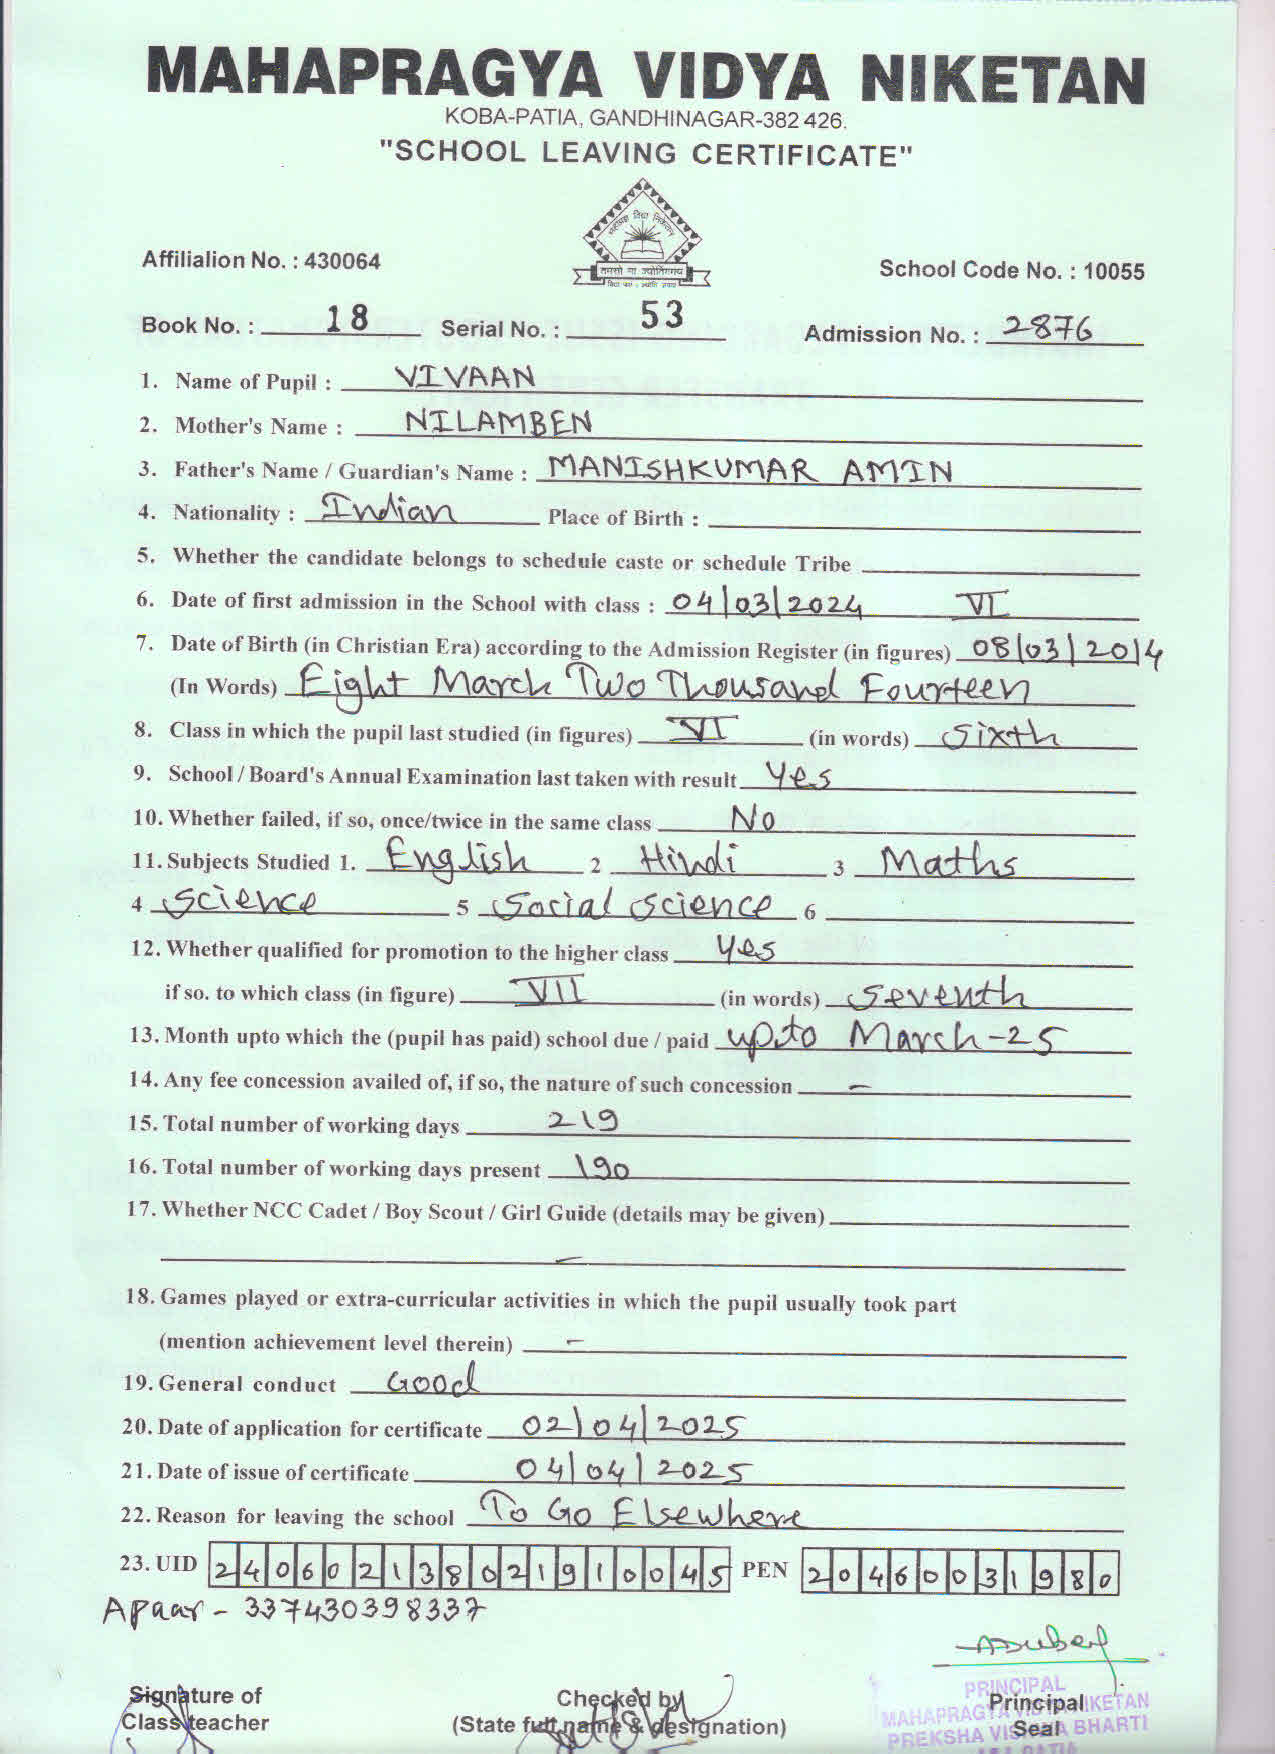 MAHAPRAGYA VIDYA NIKETAN
KOBA-PATIA, GANDHINAGAR-382 426.
"SCHOOL LEAVING CERTIFICATE"
महाप्रज्ञ विद्या निकेतन
तमसो मा ज्योतिर्गमय
Affilialion No. : 430064
School Code No. : 10055
Book No. : 18 Serial No. : 53 Admission No. : 2876
1. Name of Pupil : VIVAAN
2. Mother's Name : NILAMBEN
3. Father's Name / Guardian's Name : MANISHKUMAR AMIN
4. Nationality : Indian Place of Birth :
5. Whether the candidate belongs to schedule caste or schedule Tribe
6. Date of first admission in the School with class : 04/03/2024 VI
7. Date of Birth (in Christian Era) according to the Admission Register (in figures) 08/03/2014
(In Words) Eight March Two Thousand Fourteen
8. Class in which the pupil last studied (in figures) VI (in words) Sixth
9. School / Board's Annual Examination last taken with result Yes
10. Whether failed, if so, once/twice in the same class No
11. Subjects Studied 1. English 2 Hindi 3 Maths
4 Science 5 Social Science 6
12. Whether qualified for promotion to the higher class Yes
if so. to which class (in figure) VII (in words) Seventh
13. Month upto which the (pupil has paid) school due / paid upto March-25
14. Any fee concession availed of, if so, the nature of such concession –
15. Total number of working days 219
16. Total number of working days present 190
17. Whether NCC Cadet / Boy Scout / Girl Guide (details may be given)
–
18. Games played or extra-curricular activities in which the pupil usually took part
(mention achievement level therein) –
19. General conduct Good
20. Date of application for certificate 02/04/2025
21. Date of issue of certificate 04/04/2025
22. Reason for leaving the school To Go Elsewhere
23. UID 240602138021910045 PEN 20460031980
Apaar - 337430398337
ADubey
Signature of
Class teacher
Checked by
(State full name & designation)
Principal
Seal
PRINCIPAL
MAHAPRAGYA VIDYA NIKETAN
PREKSHA VISHWA BHARTI